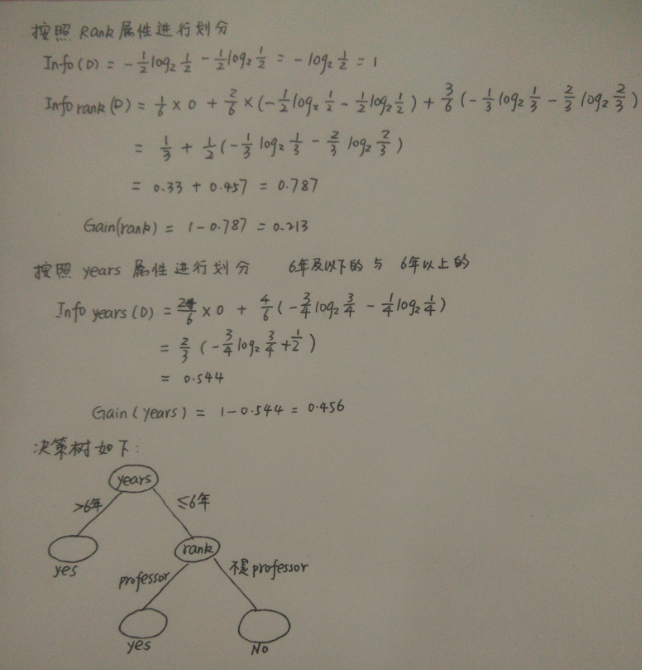 按照 Rank 属性进行划分
Info(D) = -1/2 log₂ 1/2 - 1/2 log₂ 1/2 = - log₂ 1/2 = 1
Info rank(D) = 1/6 × 0 + 2/6 × (-1/2 log₂ 1/2 - 1/2 log₂ 1/2) + 3/6 (-1/3 log₂ 1/3 - 2/3 log₂ 2/3)
= 1/3 + 1/2 (-1/3 log₂ 1/3 - 2/3 log₂ 2/3)
= 0.33 + 0.457 = 0.787
Gain(rank) = 1-0.787 = 0.213
按照 years 属性进行划分 6年及以下的 与 6年以上的
Info years (D) = 2/6 × 0 + 4/6 (-3/4 log₂ 3/4 - 1/4 log₂ 1/4)
= 2/3 (-3/4 log₂ 3/4 + 1/2)
= 0.544
Gain (years) = 1-0.544 = 0.456
决策树如下:
years
>6年 ≤6年
yes rank
professor 不是professor
yes No